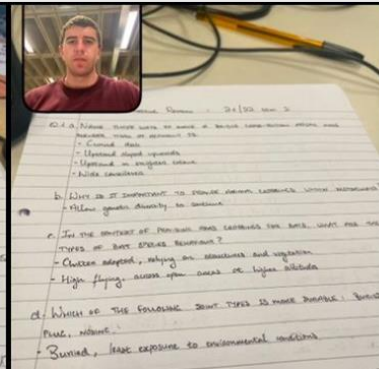 Review - 21/22 Sem 2
Q1.a. Name three ways to make a
- Curved deck
- Upstand sloped upwards
- Upstand in brightest colour
- Wide cantilevers
b. Why is it important to provide animal crossings within
- Allow genetic diversity to continue
c. In the context of providing road crossings for bats, what are the
types of bat species behaviour?
- Clutter adapted, relying on structures and vegetation
- High flying, across open areas at higher altitude
d. Which of the following joint types is more durable: Buried,
Plug, Nosing.
- Buried, least exposure to environmental conditions